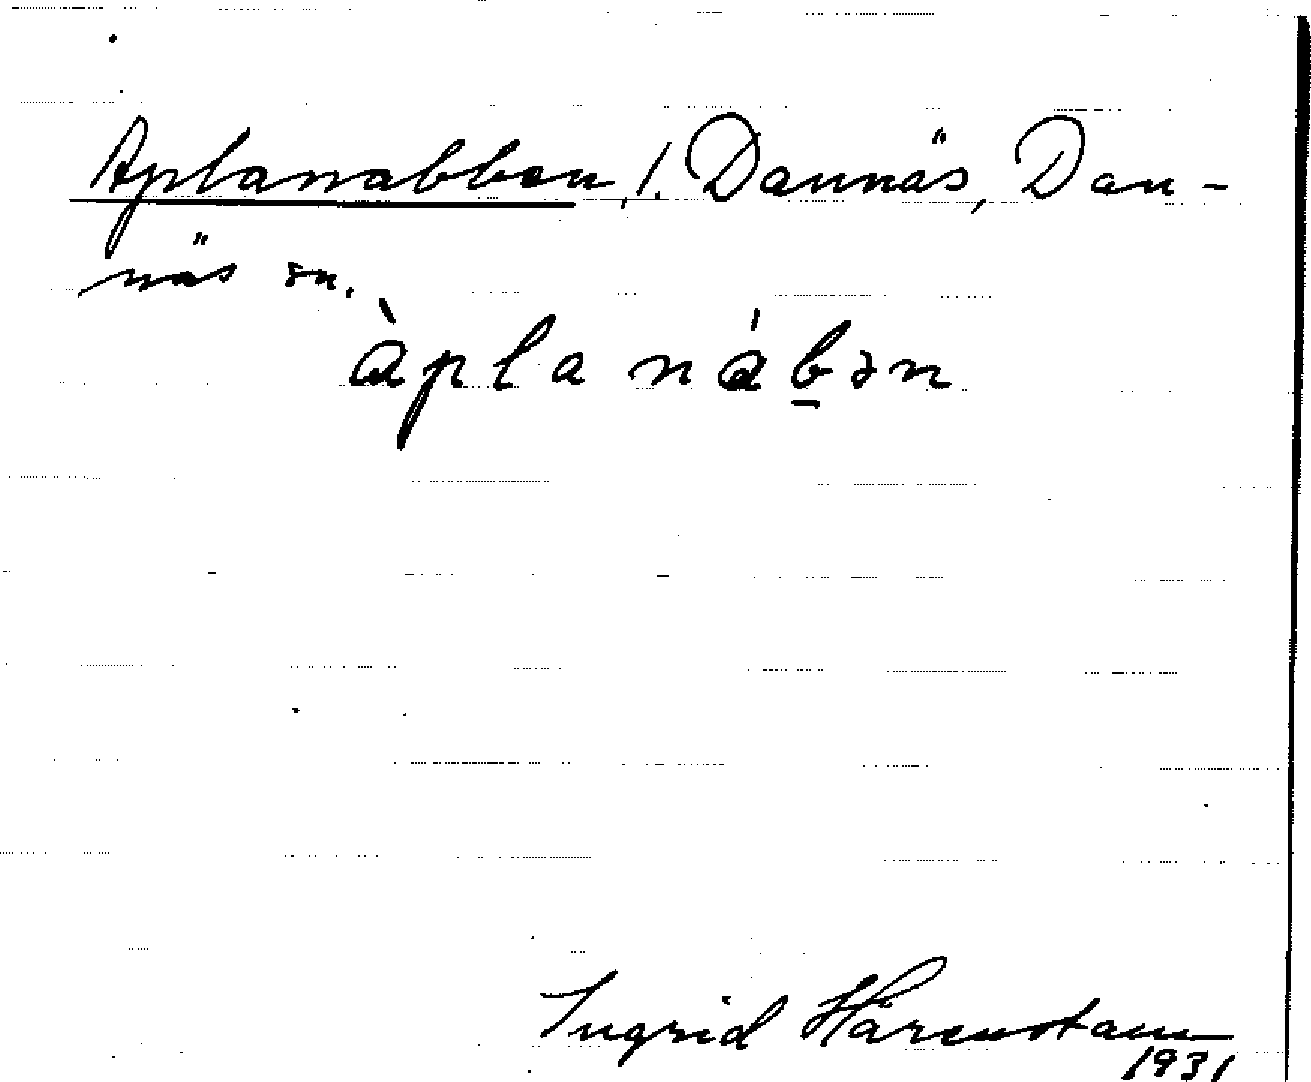 Aplanabben, l. Dannäs, Dan-
näs sn.
àpla nábən
Ingrid Hårenstam
1931